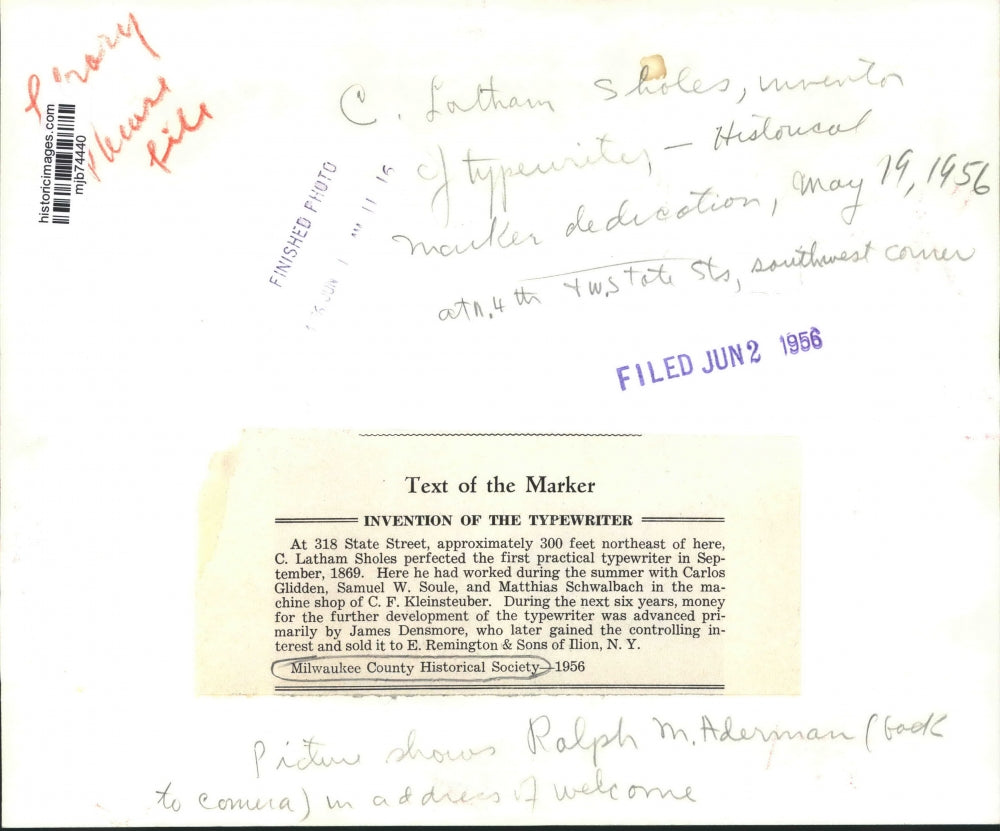 Library
please
file
historicimages.com
mjb74440
C. Latham Sholes, inventor
of typewriter, — Historical
marker dedication, May 19, 1956
at N. 4th & W. State Sts, southwest corner
FINISHED PHOTO
JUN 1 AM 11 16
FILED JUN 2 1956
Text of the Marker
INVENTION OF THE TYPEWRITER
At 318 State Street, approximately 300 feet northeast of here,
C. Latham Sholes perfected the first practical typewriter in Sep-
tember, 1869. Here he had worked during the summer with Carlos
Glidden, Samuel W. Soule, and Matthias Schwalbach in the ma-
chine shop of C. F. Kleinsteuber. During the next six years, money
for the further development of the typewriter was advanced pri-
marily by James Densmore, who later gained the controlling in-
terest and sold it to E. Remington & Sons of Ilion, N. Y.
Milwaukee County Historical Society—1956
Picture shows Ralph M. Aderman (back
to camera) in address of welcome